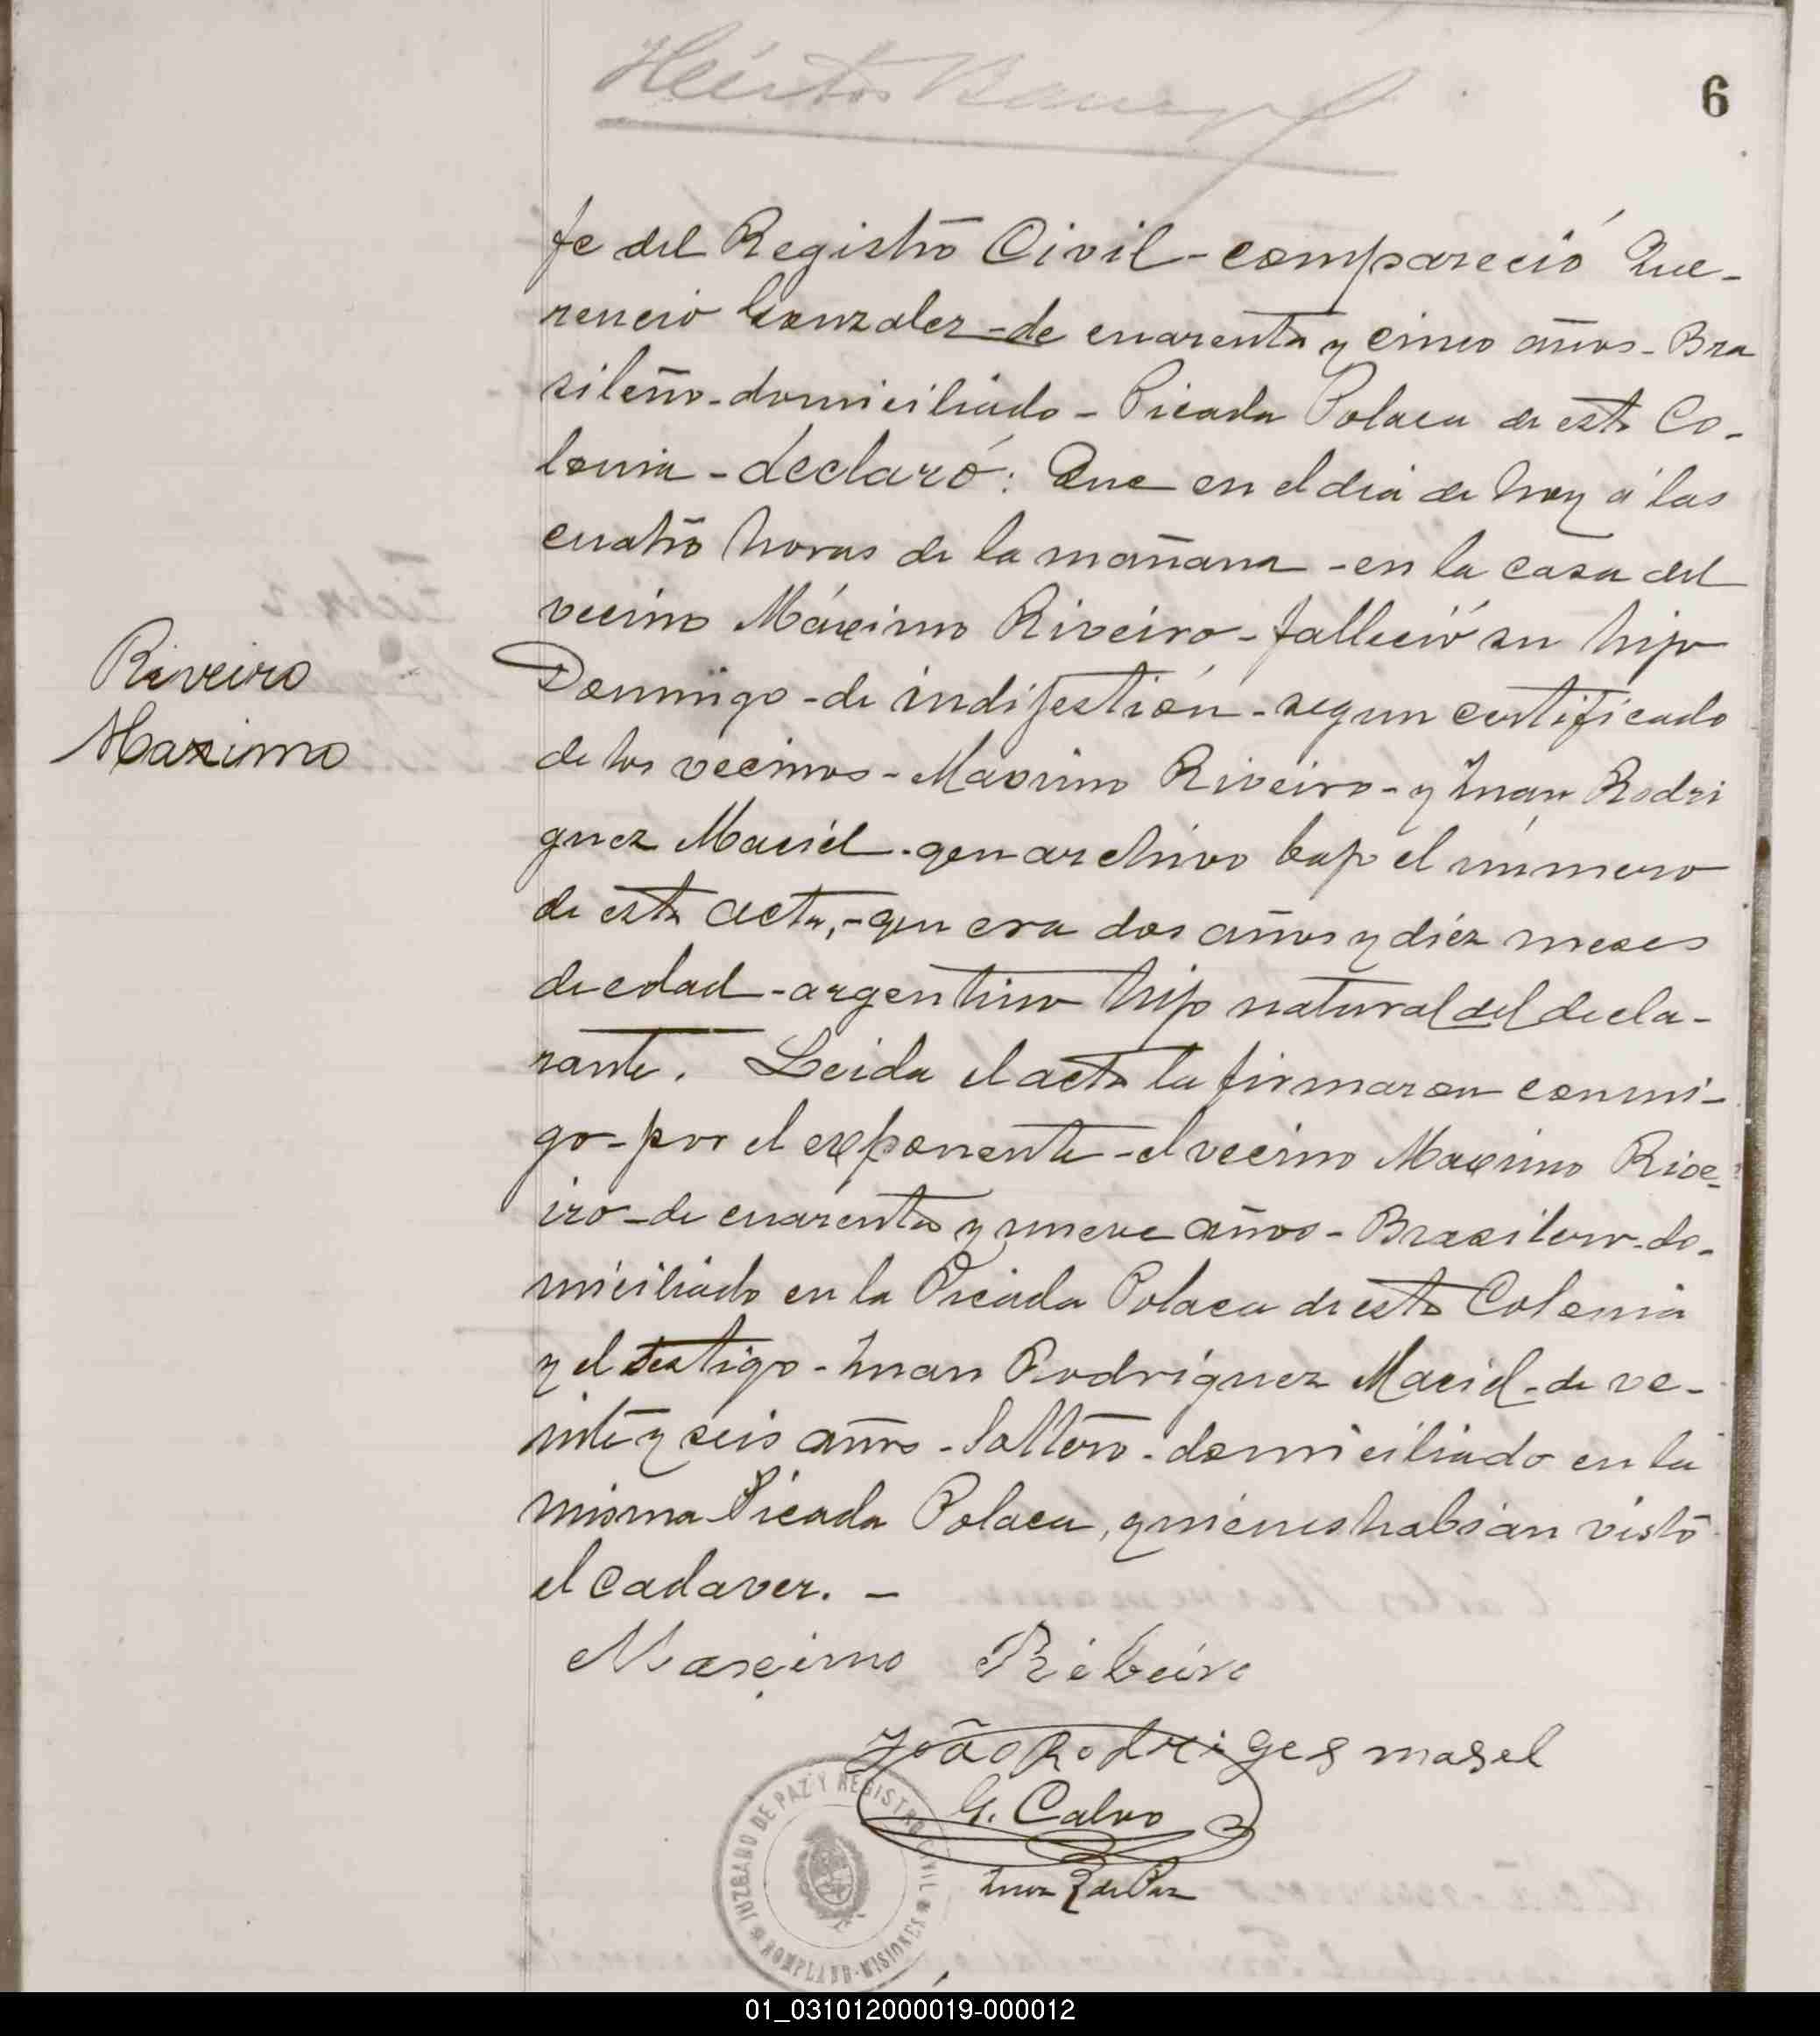 6
fe del Registro Civil - compareció Que-
rencio Gonzalez - de cuarenta y cinco años - Bra
sileño - domiciliado - Picada Polaca de esta Co-
lonia - declaró: Que en el dia de hoy á las
cuatro horas de la mañana - en la casa del
vecino Máximo Riveiro - falleció su hijo
Riveiro
Maximo
Domingo - de indijestión - segun certificado
de los vecinos - Maximo Riveiro - y Juan Rodri
guez Maciel - que archivo bajo el número
de esta acta, - que era dos años y diéz meses
de edad - argentino hijo natural del decla-
rante. Leida el acta la firmaron conmi-
go - por el exponente - el vecino Maximo Rive-
iro - de cuarenta y nueve años - Brasilero - do-
miciliado en la Picada Polaca de esta Colonia
y el testigo - Juan Rodríguez Maciel - de ve-
inte y seis años - Soltero - domiciliado en la
misma Picada Polaca, quienes habian visto
el cadaver. -
Maximo Ribeiro
João Rodriges masel
G. Calvo
Juez de Paz
JUZGADO DE PAZ Y REGISTRO CIVIL
BOMPLAND - MISIONES
01_031012000019-000012